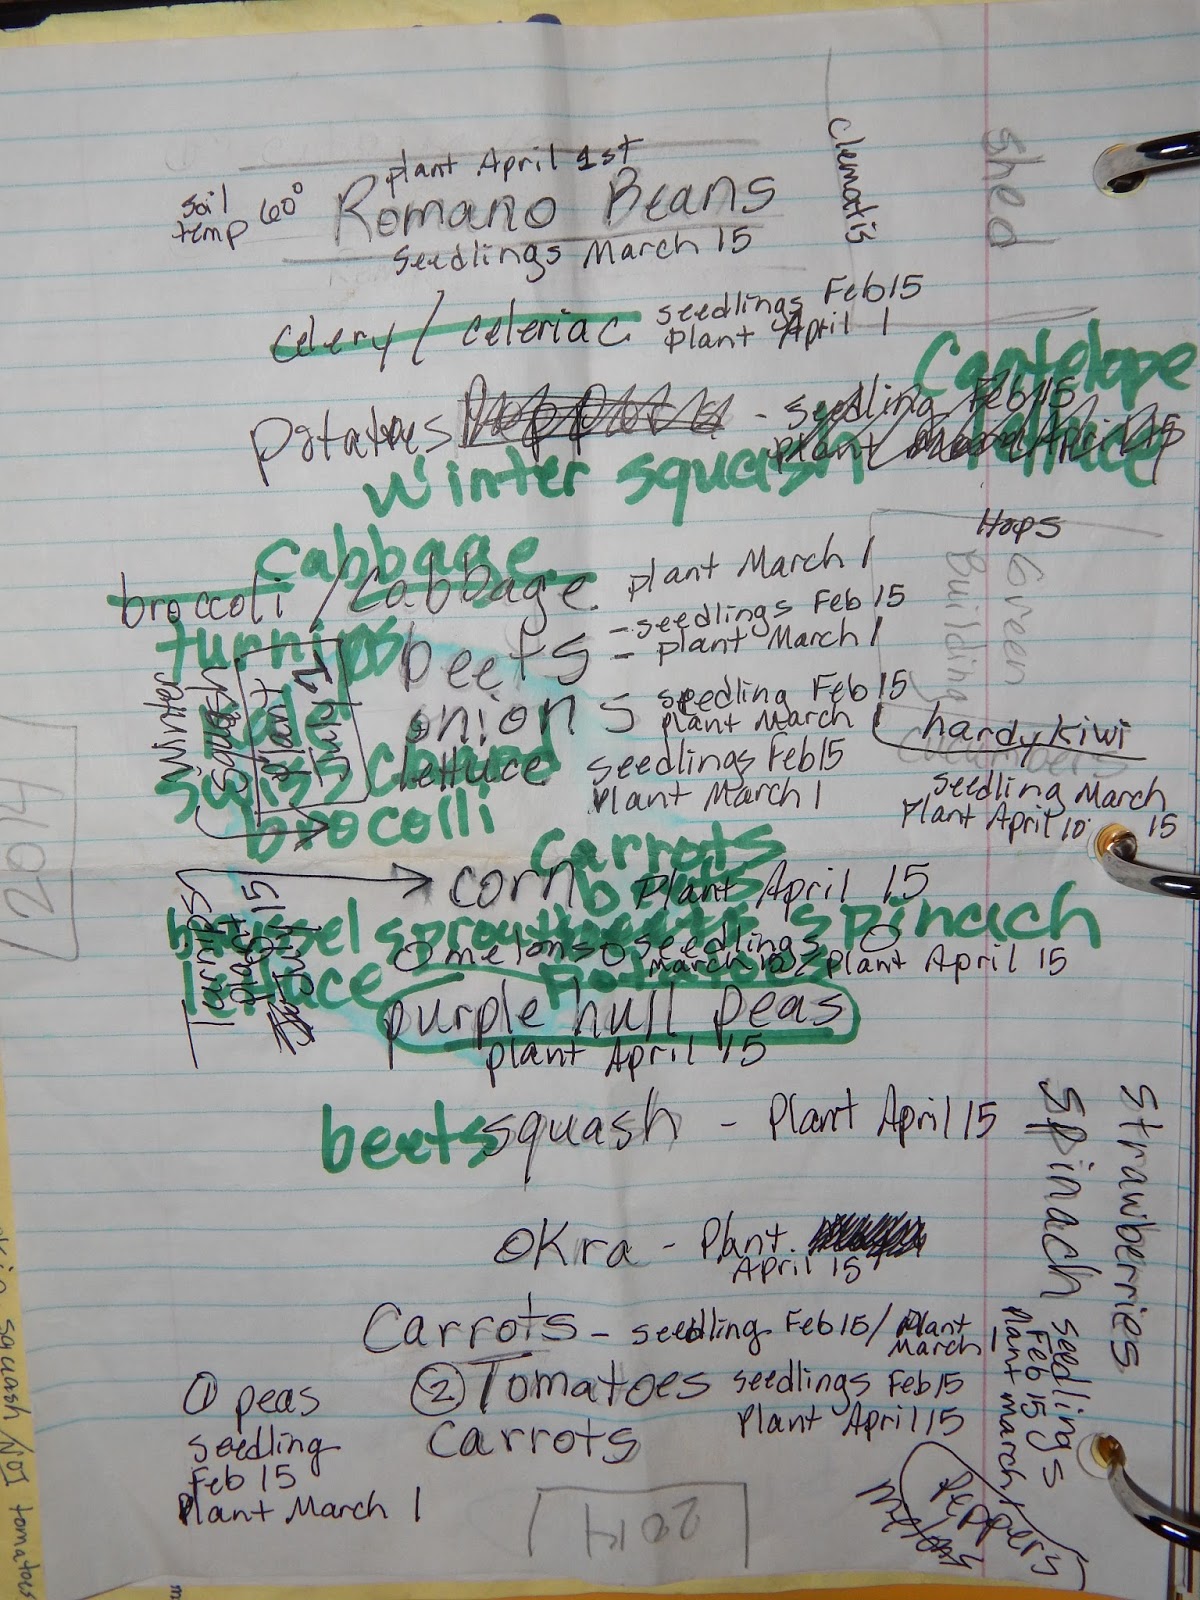 plant April 1st
soil temp 60°
Romano Beans
Seedlings March 15
Clematis
Shed
celery / celeriac
seedlings Feb 15
Plant April 1
Cantelope
potatoes
- seedling Feb 15
plant April 15
Winter squash
lettuce
Hops
Green Building
cabbage
broccoli / cabbage
plant March 1
turnips
beets
- seedlings Feb 15
- plant March 1
winter squash
plant July 1
kale
onions
seedling Feb 15
plant March 1
hardy kiwi
cucumbers
swiss chard
lettuce
seedlings Feb 15
Plant March 1
seedling March 15
Plant April 10
brocolli
2014
carrots
corn
Plant April 15
beets
turnips
plant July 15
brussel sprouts
spinach
melons
seedlings March 10 / plant April 15
lettuce
potatoes
purple hull peas
plant April 15
beets
squash - Plant April 15
strawberries
spinach
seedlings Feb 15
Plant march 1
okra - Plant
April 15
Carrots - seedling Feb 15 / Plant March 1
① peas
seedling
Feb 15
Plant March 1
② Tomatoes
seedlings Feb 15
Plant April 15
carrots
Peppers
melons
2014
squash / NOT tomatoes